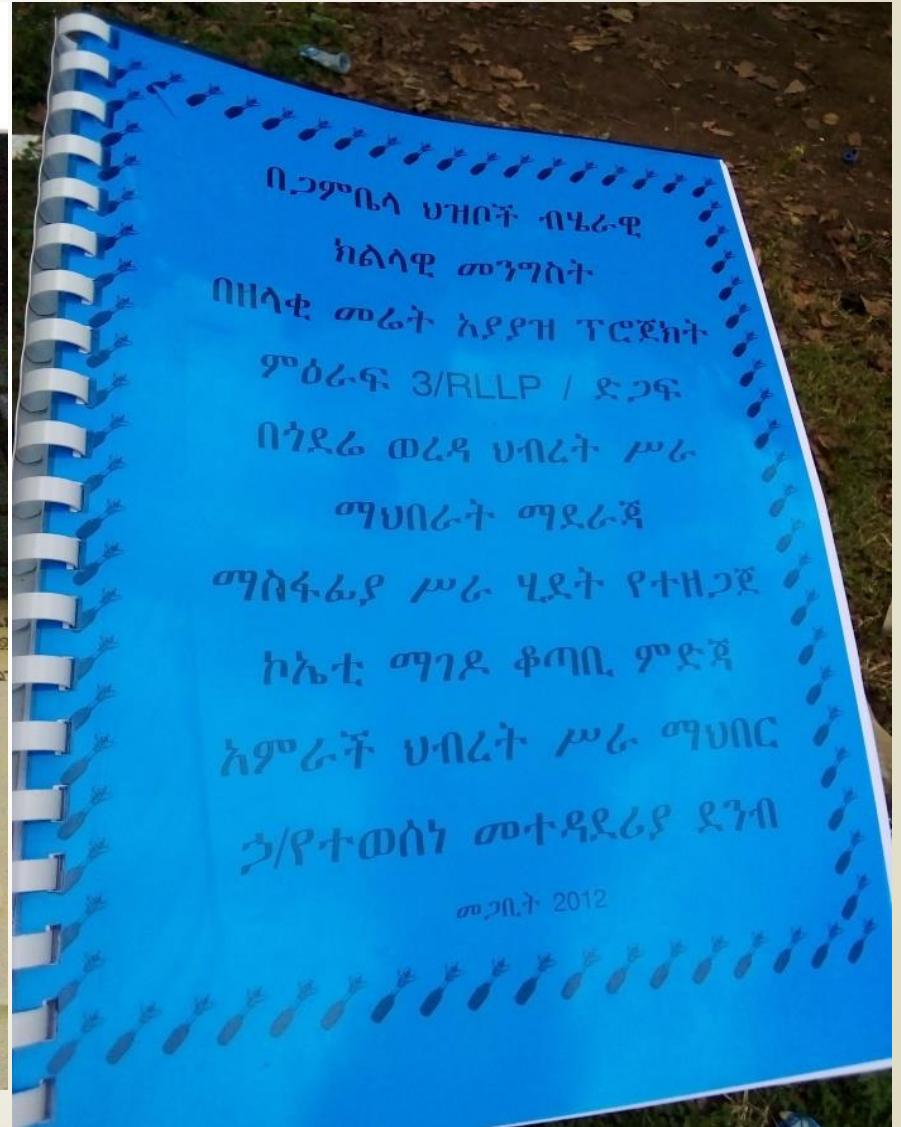 በጋምቤላ ህዝቦች ብሄራዊ
ክልላዊ መንግስት
በዘላቂ መሬት አያያዝ ፕሮጀክት
ምዕራፍ 3/RLLP / ድጋፍ
በጎደሬ ወረዳ ህብረት ሥራ
ማህበራት ማደራጃ
ማስፋፊያ ሥራ ሂደት የተዘጋጀ
ኮኤቲ ማገዶ ቆጣቢ ምድጃ
አምራች ህብረት ሥራ ማህበር
ኃ/የተወሰነ መተዳደሪያ ደንብ
መጋቢት 2012